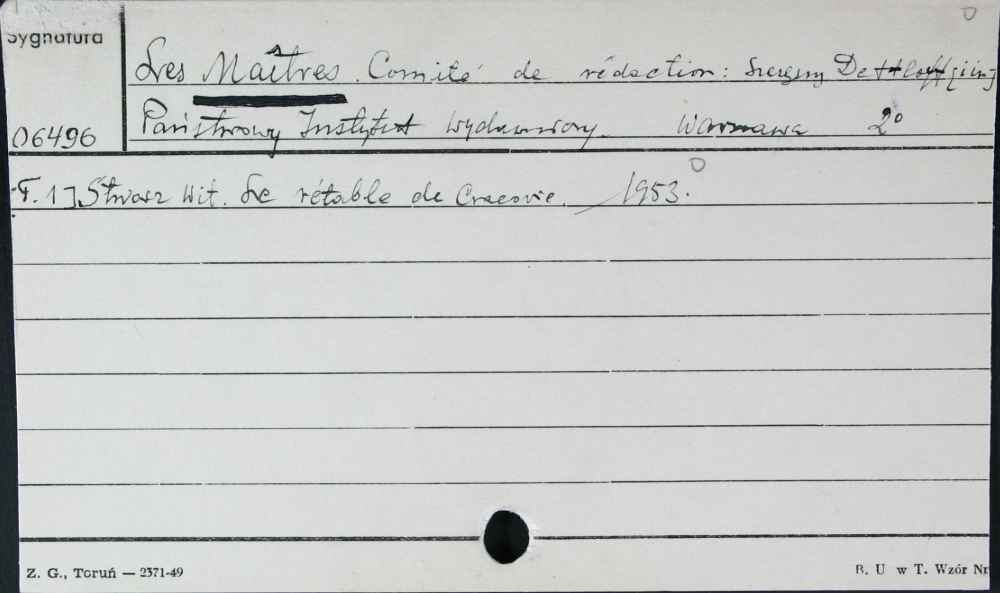 Sygnatura
Les Maîtres. Comité de rédaction: Szczęsny Dettloff [i in]
06496
Państwowy Instytut Wydawniczy. Warszawa 2°
T. 1] Stwosz Wit. Le rétable de Cracovie. 1953.
Z. G., Toruń — 2371-49
B. U w T. Wzór Nr